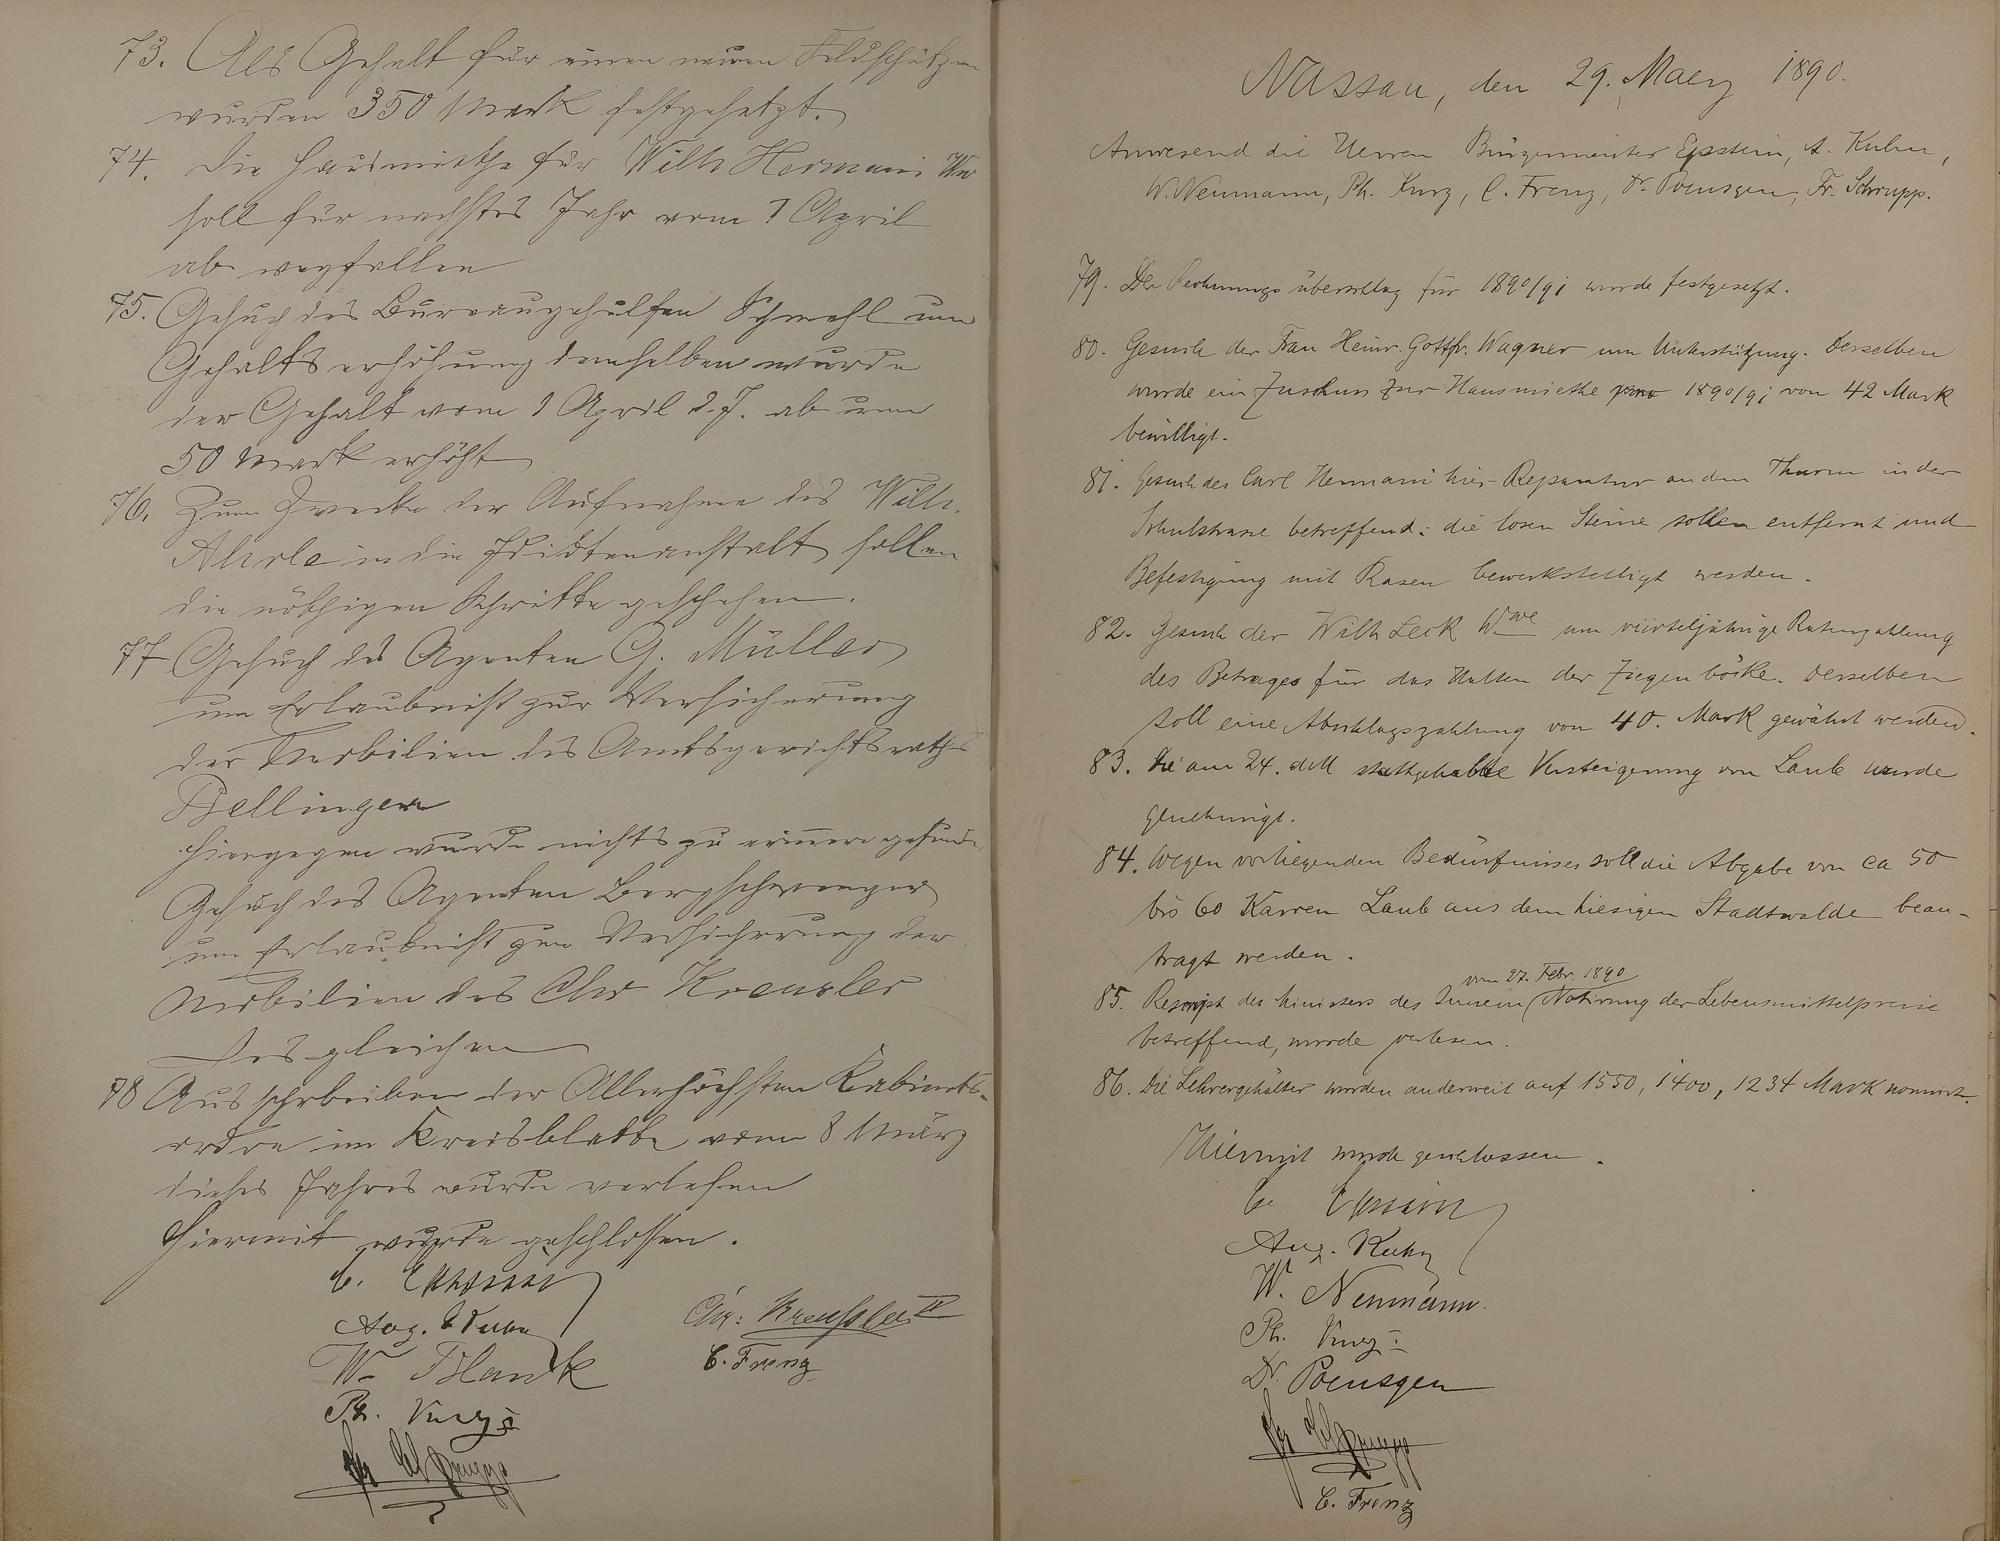 73. Als Gehalt für einen neuen Feldschützen
wurden 350 Mark festgesetzt.
74. Die Hausmiethe für Wilh Hermani Ww
soll für nächstes Jahr vom 1 April
ab wegfallen
75. Gesuch des Bureaugehülfen Schmehl um
Gehaltserhöhung demselben wurde
der Gehalt vom 1 April d. J. ab um
50 Mark erhöht
76. Zum Zwecke der Aufnahme des Wilh.
in die Idiotenanstalt sollen
die nöthigen Schritte geschehen.
77 Gesuch des Agenten G. Müller
um Erlaubniß zur Versicherung
der Mobilien des Amtsgerichtsraths
Bellinger
hiergegen wurde nichts zu erinnern gefunden
Gesuch des Agenten Bergschwenger
um Erlaubniß zur Versicherung der
Mobilien des Chr Kreusler
Desgleichen
78 Ausschreiben der Allerhöchsten Kabinets-
ordre im Kreisblatte vom 8 März
dieses Jahres wurde verlesen
Hiermit wurde geschlossen.
C. Epstein
Aug. Kuhn
W. Blank
Ph. Kurz
Fr Schrupp
Chr: Kreußler II
C. Frenz
Nassau, den 29. Maerz 1890.
Anwesend die Herren Bürgermeister Epstein, A. Kuhn,
W. Neumann, Ph. Kurz, C. Frenz, Dr. Poensgen, Fr. Schrupp.
79. Der Rechnungsüberschlag für 1890/91 wurde festgesetzt.
80. Gesuch der Frau Heinr. Gottfr. Wagner um Unterstützung. Derselben
wurde ein Zuschuss zur Hausmiethe pro 1890/91 von 42 Mark
bewilligt.
81. Gesuch des Carl Hermani hier Reparatur an dem Thurm in der
Schulstrasse betreffend: die losen Steine sollen entfernt und
Befestigung mit Rasen bewerkstelligt werden.
82. Gesuch der Wilh Leck Wwe um vierteljährige Ratenzahlung
des Betrages für das Halten der Ziegenböcke. Derselben
soll eine Abschlagszahlung von 40. Mark gewährt werden.
83. Die am 24. dM stattgehabte Versteigerung von Laub wurde
genehmigt.
84. Wegen vorliegenden Bedürfnisses soll die Abgabe von ca 50
bis 60 Karren Laub aus dem hiesigen Stadtwalde bean-
tragt werden.
vom 27. Febr. 1890
85. Rescript des Ministers des Innern (Notirung der Lebensmittelpreise
betreffend, wurde verlesen.
86. Die Lehrergehälter wurden anderweit auf 1550, 1400, 1234 Mark normirt.
Hiermit wurde geschlossen.
C. Epstein
Aug. Kuhn
W. Neumann.
Ph. Kurz
Dr. Poensgen
Fr Schrupp
C. Frenz